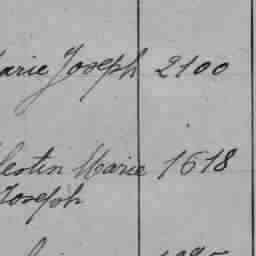 arie Joseph 2100
lestin Marie 1618
Joseph